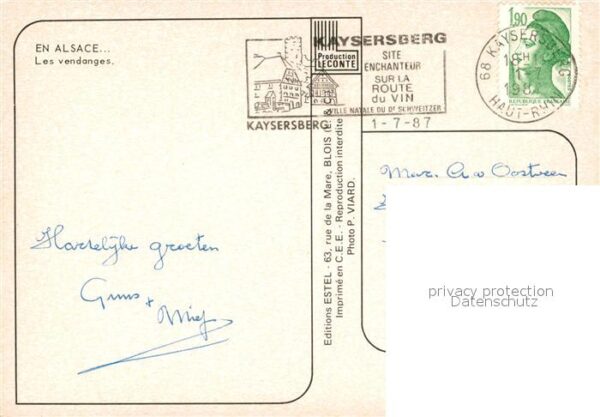 EN ALSACE...
Les vendanges.
Production
LECONTE
KAYSERSBERG
KAYSERSBERG
SITE
ENCHANTEUR
SUR LA
ROUTE
du VIN
VILLE NATALE DU Dr SCHWEITZER
1-7-87
1,90
68 KAYSERSBERG
HAUT-RHIN
Editions ESTEL - 63, rue de la Mare, BLOIS
Imprimé en C.E.E. - Reproduction interdite
Photo P. VIARD.
Hartelijke groeten
Guus +
Miep
Oostveen
privacy protection
Datenschutz